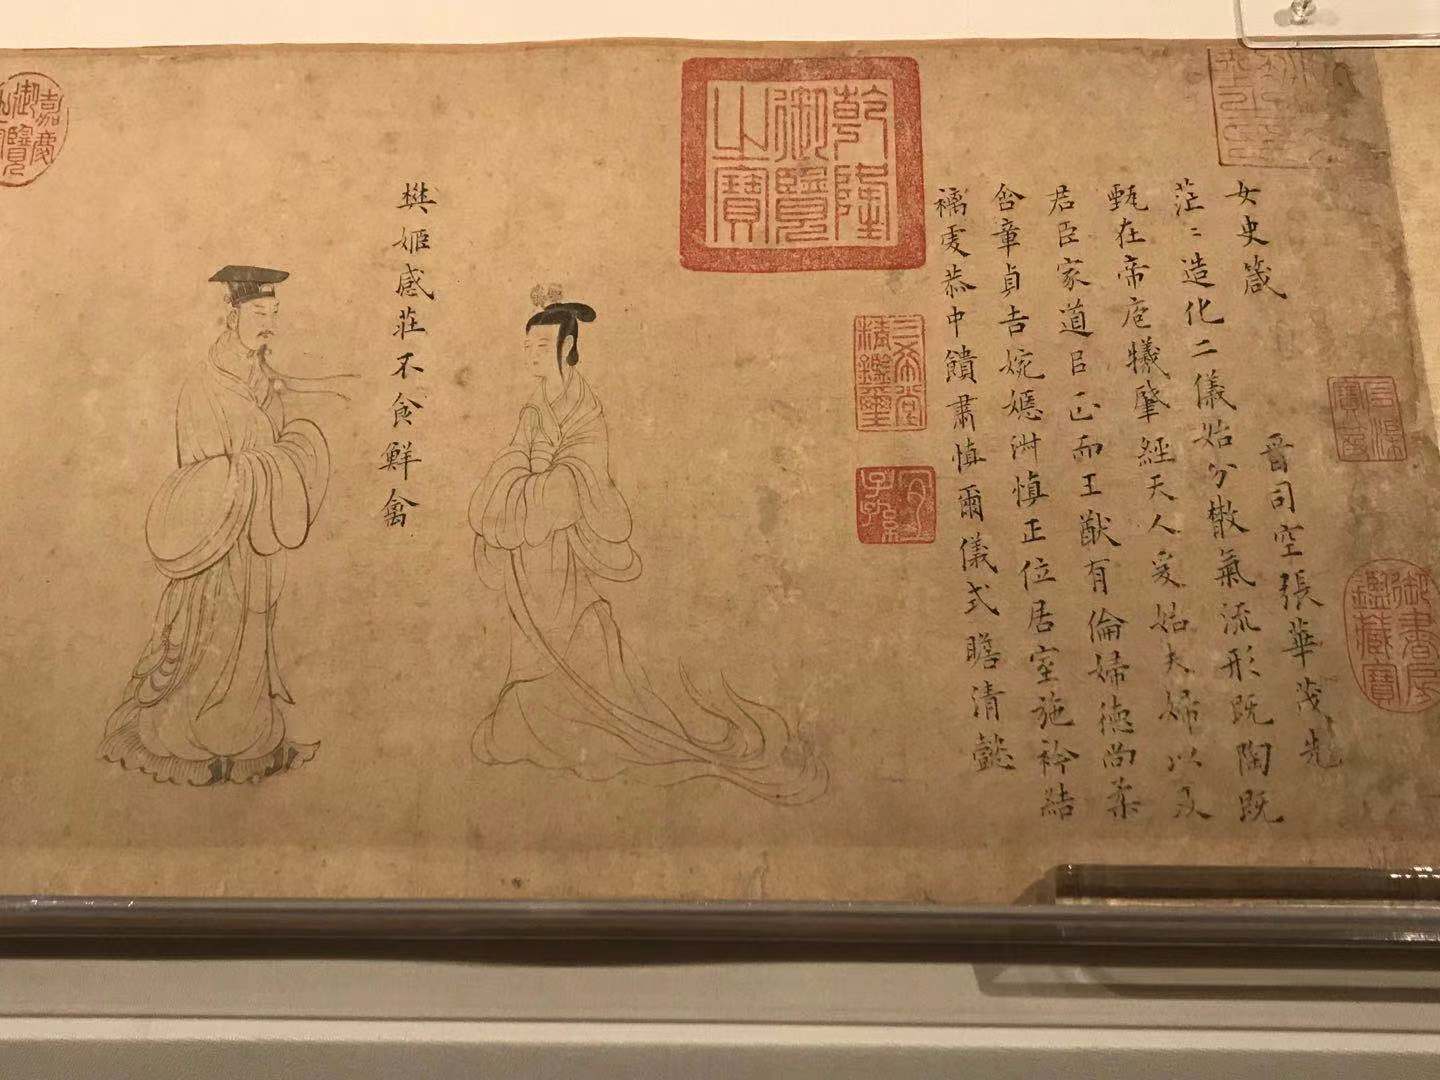 女史箴
晉司空張華茂先
茫〻造化二儀始分散氣流形既陶既
甄在帝庖犧肇經天人爰始夫婦以及
君臣家道以正而王猷有倫婦德尚柔
含章貞吉婉嫕淑慎正位居室施衿結
褵虔恭中饋肅慎爾儀式瞻清懿
乾隆御覽之寶
三希堂精鑑璽
宜子孫
御書房鑑藏寶
樊姬感莊不食鮮禽
嘉慶御覽之寶